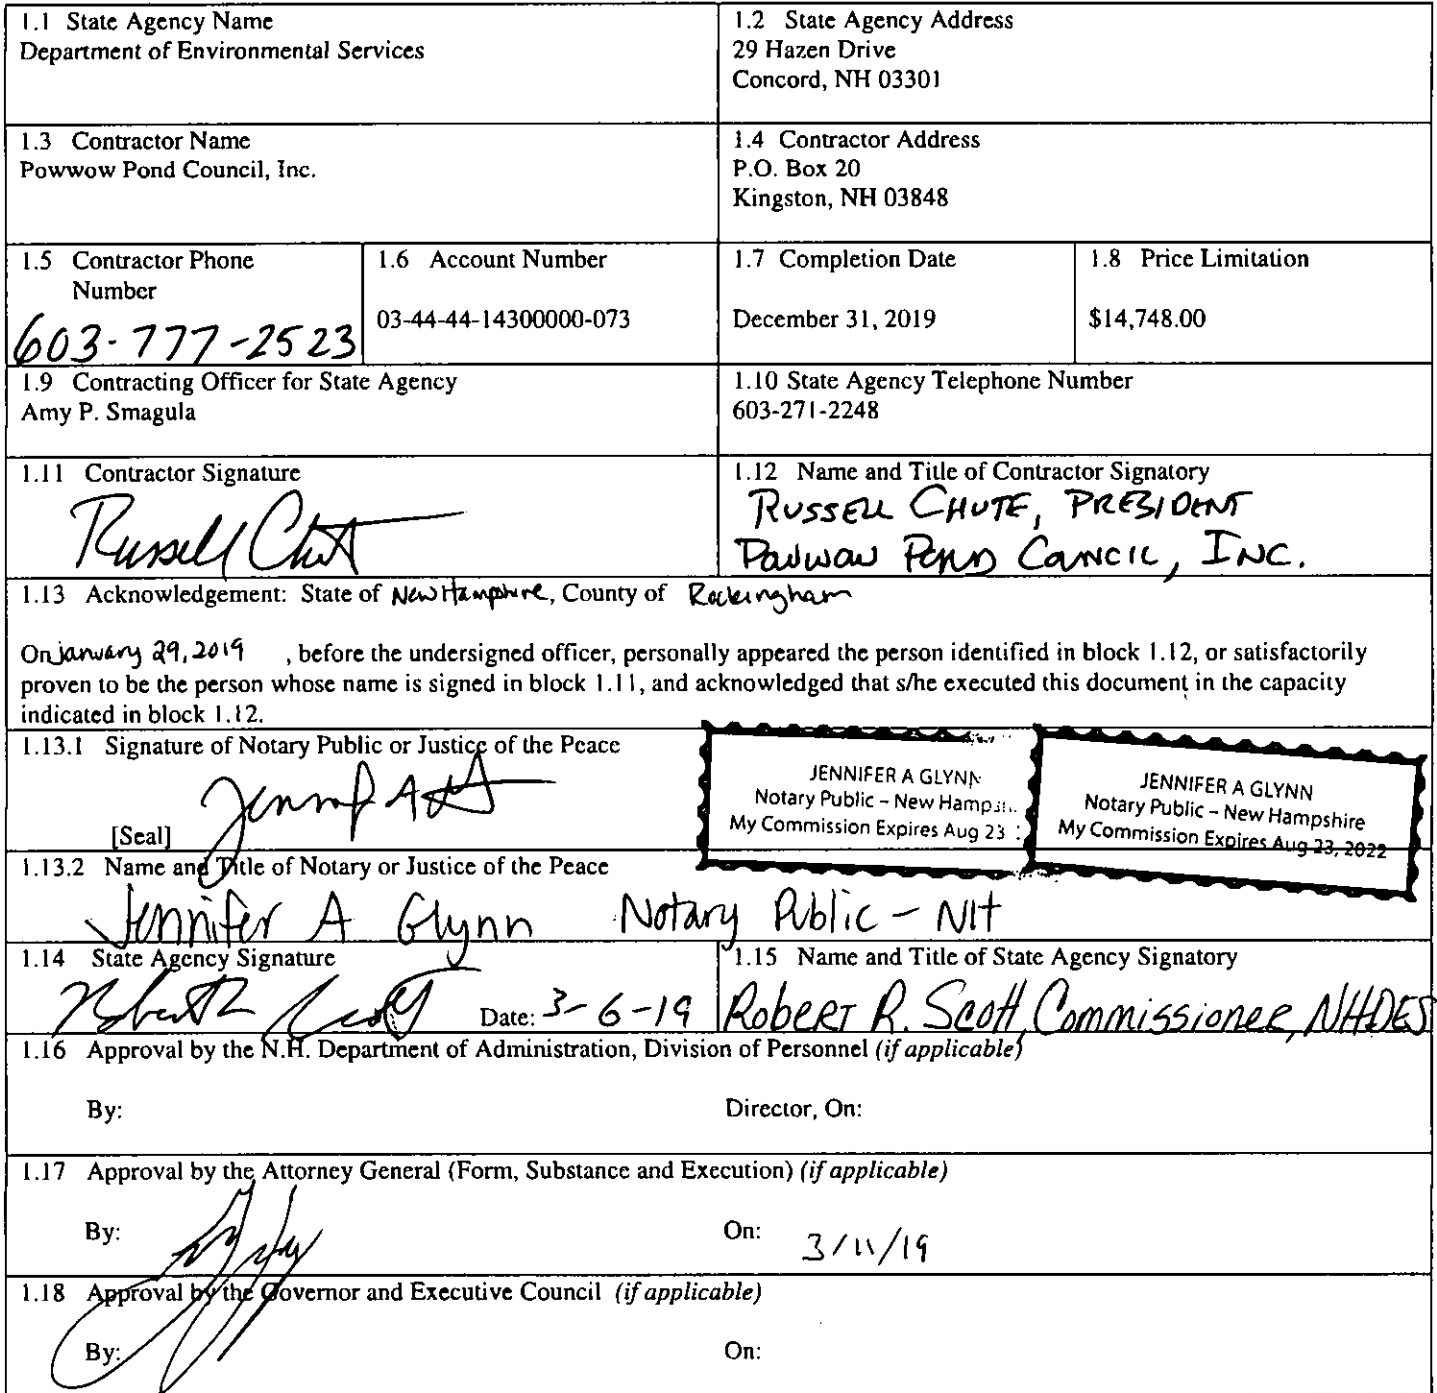 1.1 State Agency Name
Department of Environmental Services
1.2 State Agency Address
29 Hazen Drive
Concord, NH 03301
1.3 Contractor Name
Powwow Pond Council, Inc.
1.4 Contractor Address
P.O. Box 20
Kingston, NH 03848
1.5 Contractor Phone
Number
603-777-2523
1.6 Account Number
03-44-44-14300000-073
1.7 Completion Date
December 31, 2019
1.8 Price Limitation
$14,748.00
1.9 Contracting Officer for State Agency
Amy P. Smagula
1.10 State Agency Telephone Number
603-271-2248
1.11 Contractor Signature
Russell Chute
1.12 Name and Title of Contractor Signatory
RUSSELL CHUTE, PRESIDENT
POWWOW POND COUNCIL, INC.
1.13 Acknowledgement: State of New Hampshire, County of Rockingham
On January 29, 2019 , before the undersigned officer, personally appeared the person identified in block 1.12, or satisfactorily
proven to be the person whose name is signed in block 1.11, and acknowledged that s/he executed this document in the capacity
indicated in block 1.12.
1.13.1 Signature of Notary Public or Justice of the Peace
[Seal]
JENNIFER A GLYNN
Notary Public – New Hamps
My Commission Expires Aug 23
JENNIFER A GLYNN
Notary Public – New Hampshire
My Commission Expires Aug 23, 2022
1.13.2 Name and Title of Notary or Justice of the Peace
Jennifer A Glynn Notary Public – NH
1.14 State Agency Signature
Date: 3-6-19
1.15 Name and Title of State Agency Signatory
Robert R. Scott, Commissioner, NHDES
1.16 Approval by the N.H. Department of Administration, Division of Personnel (if applicable)
By: Director, On:
1.17 Approval by the Attorney General (Form, Substance and Execution) (if applicable)
By: On: 3/11/19
1.18 Approval by the Governor and Executive Council (if applicable)
By: On: